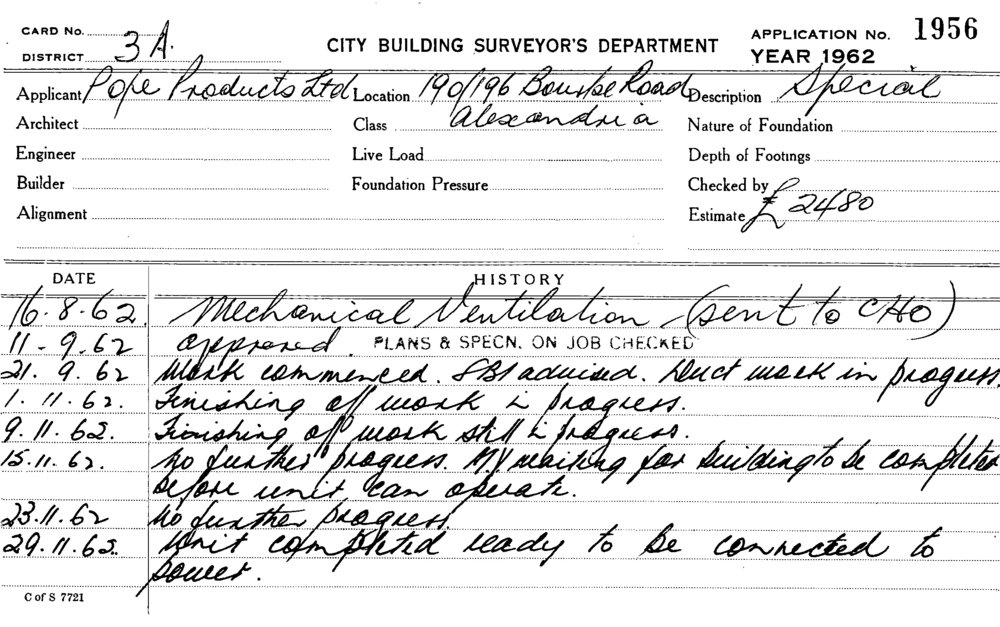 CARD No.
DISTRICT 3A.
CITY BUILDING SURVEYOR'S DEPARTMENT
APPLICATION No. 1956
YEAR 1962
Applicant Pope Products Ltd Location 190/196 Bourke Road Description Special
Architect Class Alexandria Nature of Foundation
Engineer Live Load Depth of Footings
Builder Foundation Pressure Checked by
Alignment Estimate £ 2480
DATE HISTORY
16.8.62. Mechanical Ventilation (sent to CHO)
11-9.62 approved. PLANS & SPECN. ON JOB CHECKED
21.9.62 Work commenced. advised. Duct work in progress.
1.11.62. Finishing off work in progress.
9.11.62. Finishing off work still in progress.
15.11.62. No further progress. waiting for building to be completed
before unit can operate.
23.11.62 No further progress.
29.11.62. Unit completed ready to be connected to
power.
C of S 7721